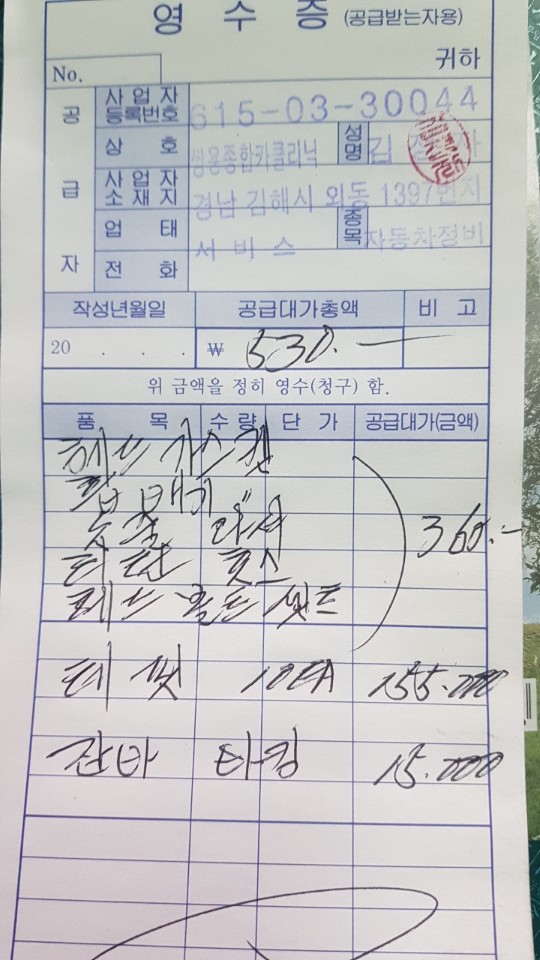 영 수 증 (공급받는자용)
No. 귀하
공 급 자
사업자 등록번호 615-03-30044
상 호 쌍용종합카클리닉 성명 김
사업자 소재지 경남 김해시 외동 1397번지
업 태 서 비 스 종목 자동차정비
전 화
작성년월일 공급대가총액 비 고
20 . . . ₩ 530.-
위 금액을 정히 영수(청구) 함.
품 목 수 량 단 가 공급대가(금액)
헤드 가스켓
360.-
리턴 홋스
헤드 볼트 셋트
10EA 155.000
잔바 타킹 15.000